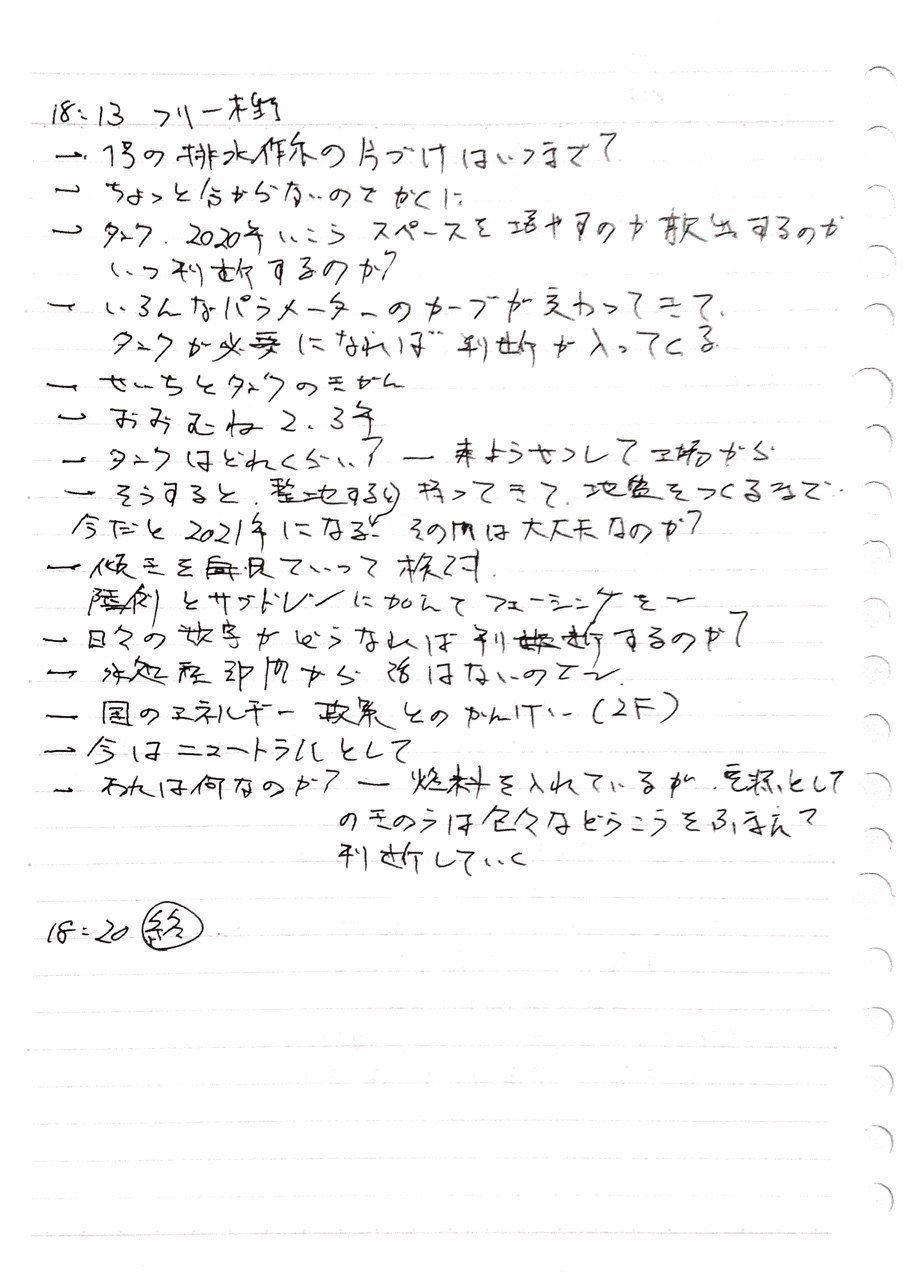 18:13 フリー木野
→ 1号の排水作業の片づけはいつまで?
→ ちょっと分からないのでかくに
→ タンク、2020年いこう スペースを増やすのか 放出するのか
いつ判断するのか?
→ いろんなパラメーターのカーブが変わってきて、
タンクが必要になれば 判断が入ってくる
→ せいちとタンクのきかん
→ おおむね2、3年
→ タンクはどれくらい? ー ようせつして工場から
→ そうすると、整地すると 持ってきて、地盤をつくるまで
今だと2021年になる その間は大丈夫なのか?
→ 傾きを見ていって 検討.
とサブドレンに加えてフェーシングを〜
→ 日々の数字がどうなれば 判断するのか?
→ 水処理部門から 強はないので〜
→ 国のエネルギー 政策とのかんけい (2F)
→ 今はニュートラルとして
→ われは何なのか? ー 燃料を入れているが、として
のきのうは色々などうこうをふまえて
判断していく
18:20 終